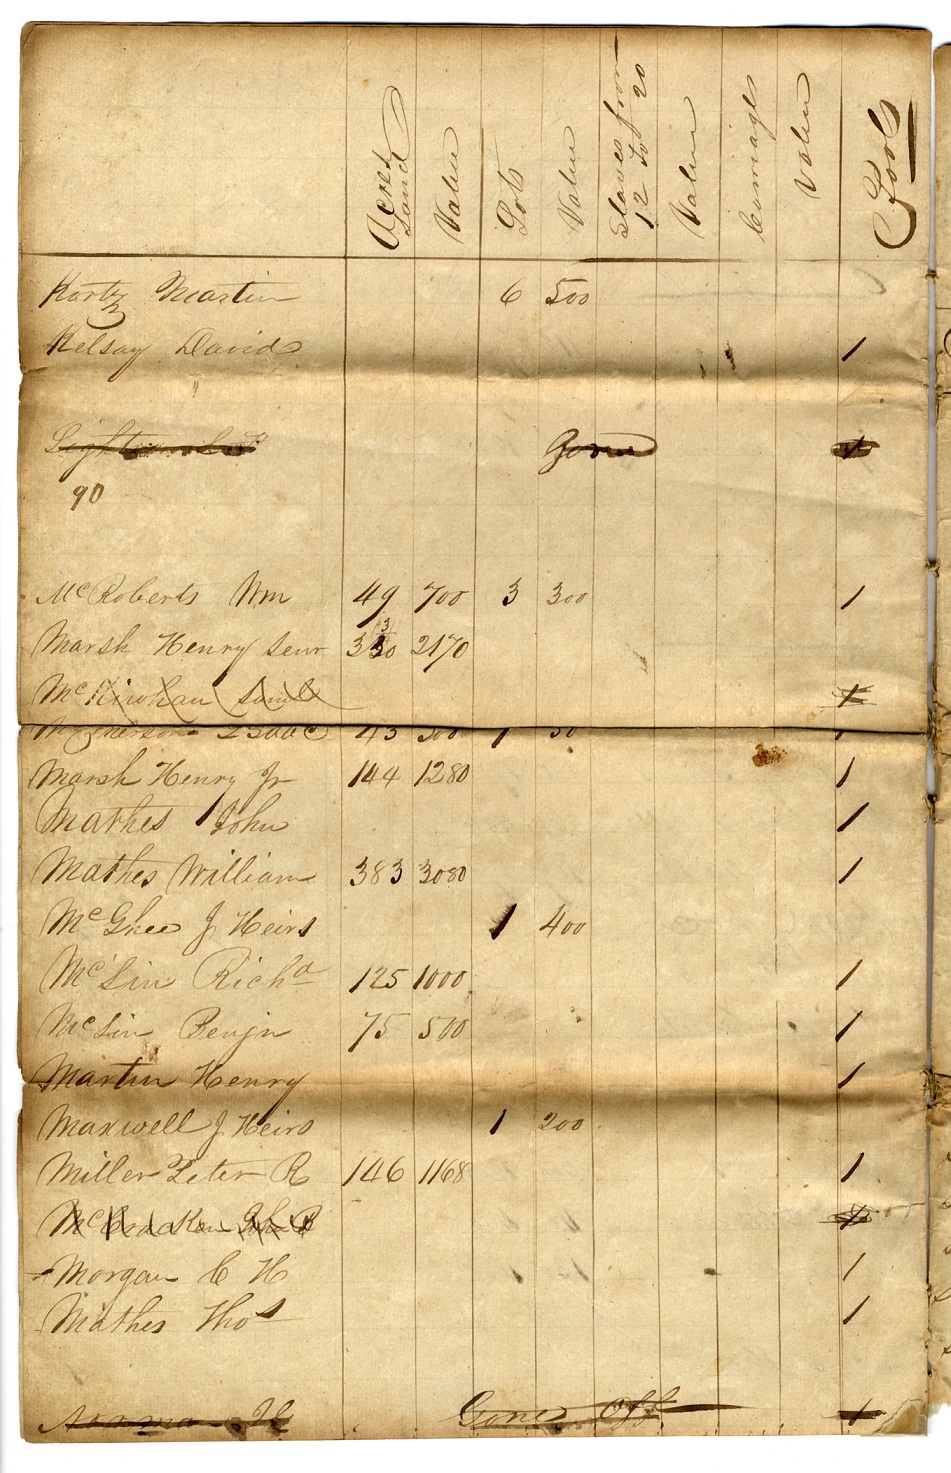 Acres Land Value Lots Value Slaves from 12 to 20 Value Carriages Value Pools
Kortz Martin 6 500
3
Kelsay David 1
Gone 1
90
McRoberts Wm 49 700 3 300 1
Marsh Henry Senr 330 2170
McKinohan Saml 1
McPherson Isaac 45 300 1 50 1
Marsh Henry Jr 144 1280 1
Mathes John 1
Mathes William 383 3080 1
McGhee J Heirs 1 400
McLin Richd 125 1000 1
McLin Benjn 75 500 1
Martin Henry 1
Maxwell J Heirs 1 200
Miller Peter R 146 1168 1
McCracken John B 1
Morgan C H 1
Mathes Thos 1
Gone Off 1